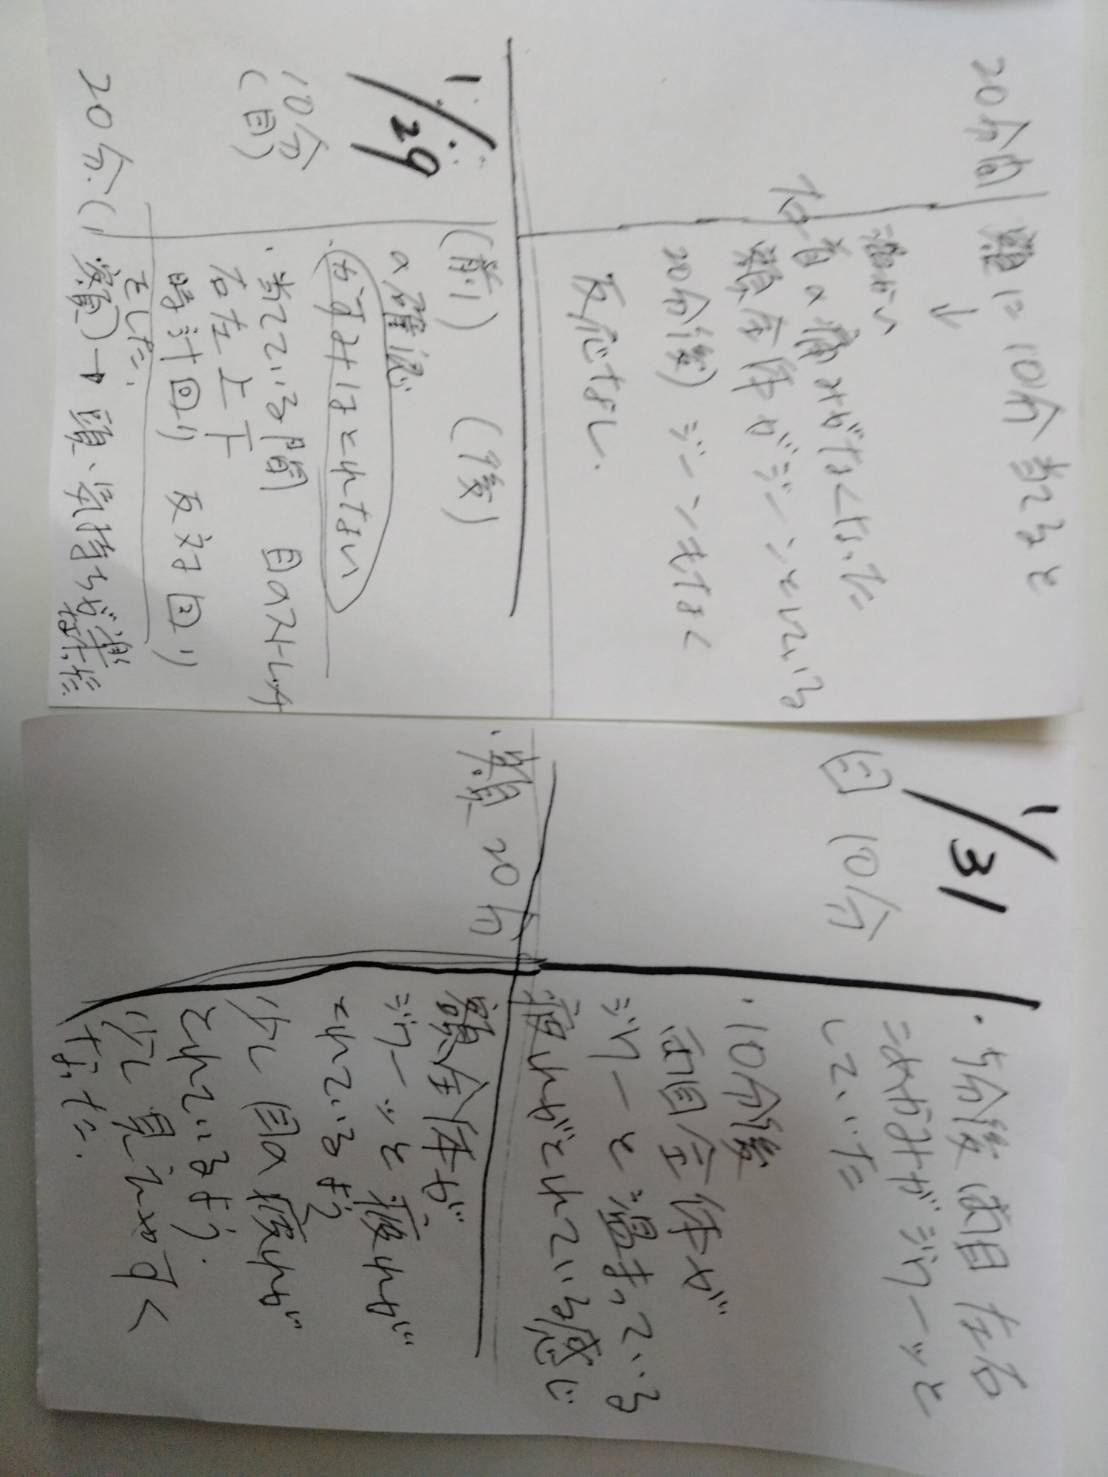 20分間
額に10分当てると
↓
温かい
右首の痛みがなくなった
額全体がジーンとしている
20分後)ジーンもなく
反応なし.
1/29
(前) (後)
の確認
かすみはとれない
10分
(目)
・当てている間 目のストレッチ
右左上下
時計回り 反対回り
をした.
20分(額)→頭、気持ちが楽
になった
1/31
目 10分
・5分後 両目左右
こめかみがジワーッと
していた
・10分後
両目全体が
ジワーと温まっている
疲れがとれている感じ
・額 20分
額全体が
ジワーッと疲れが
とれているよう
少し目の疲れが
とれているよう.
少し見えやすく
なった.